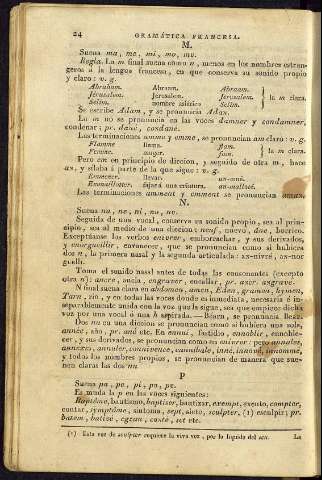 24 GRAMÁTICA FRANCESA.
M.
Suena ma, me, mi, mo, mu.
Regla. La m final suena como n, menos en los nombres estran-
geros á la lengua francesa, en que conserva su sonido propio
y claro: v. g.
Abraham. Abraam. Abraam.
Jérusalem. Jerusalen. Jérusalem. la m clara.
Sélim. nombre asiático Sélim.
Se escribe Adam, y se pronuncia Adan.
La m no se pronuncia en las voces damner y condamner,
condenar; pr. dané, condané.
Las terminaciones amme y emme, se pronuncian am claro: v. g.
Flamme llama. flam. la m clara.
Femme. muger. fam.
Pero em en principio de diccion, y seguido de otra m, hace
an, y sílaba á parte de la que sigue: v. g.
Emmener. llevar. an-mné.
Emmailloter.
Las terminaciones amment y emment se pronuncian aman.
N.
Suena na, ne, ni, no, nu.
Seguida de una vocal, conserva su sonido propio, sea al prin-
cipio, sea al medio de una diccion: neuf, nuevo; doce, borrico.
Exceptúanse los verbos enivrer, emborrachar, y sus derivados,
y enorguellir, envanecer, que se pronuncian como si hubiera
dos n, la primera nasal y la segunda articulada: an-nivré, an-nor
guellí.
Toma el sonido nasal antes de todas las consonantes (excepto
otra n): ancre, ancla, engraver, encallar, pr. ancr, angravé.
N final suena clara en abdomen, amen, Eden, gramen, hymen,
Tarn, rio, y en todas las voces donde es inmediata, necesaria é in-
separablemente unida con la voz que la sigue, sea que empiece dicha
voz por una vocal ó una h aspirada.
Dos nn en una diccion se pronuncian como si hubiera una sola,
année, año, pr. ané etc. En ennui, fastidio, ennoblir, ennoble-
cer, y sus derivados, se pronuncian como en enivrer: pero annales,
annexes, annuler, connivence, cannibale, inné, innové, innommé,
y todos los nombres propios, se pronuncian de manera que sue-
nen claras las dos nn.
P
Suena pa, pe, pi, po, pu.
Es muda la p en las voces siguientes:
Baptême, bautismo, baptiser, bautizar, exempt, exento, compter,
contar, symptôme, síntoma, sept, siete, sculpter, (1) esculpir; pr.
batem, batisé, egzan, conté, set etc.
(1) Esta voz de sculpter requiere la viva voz, por lo líquido del scu.
La